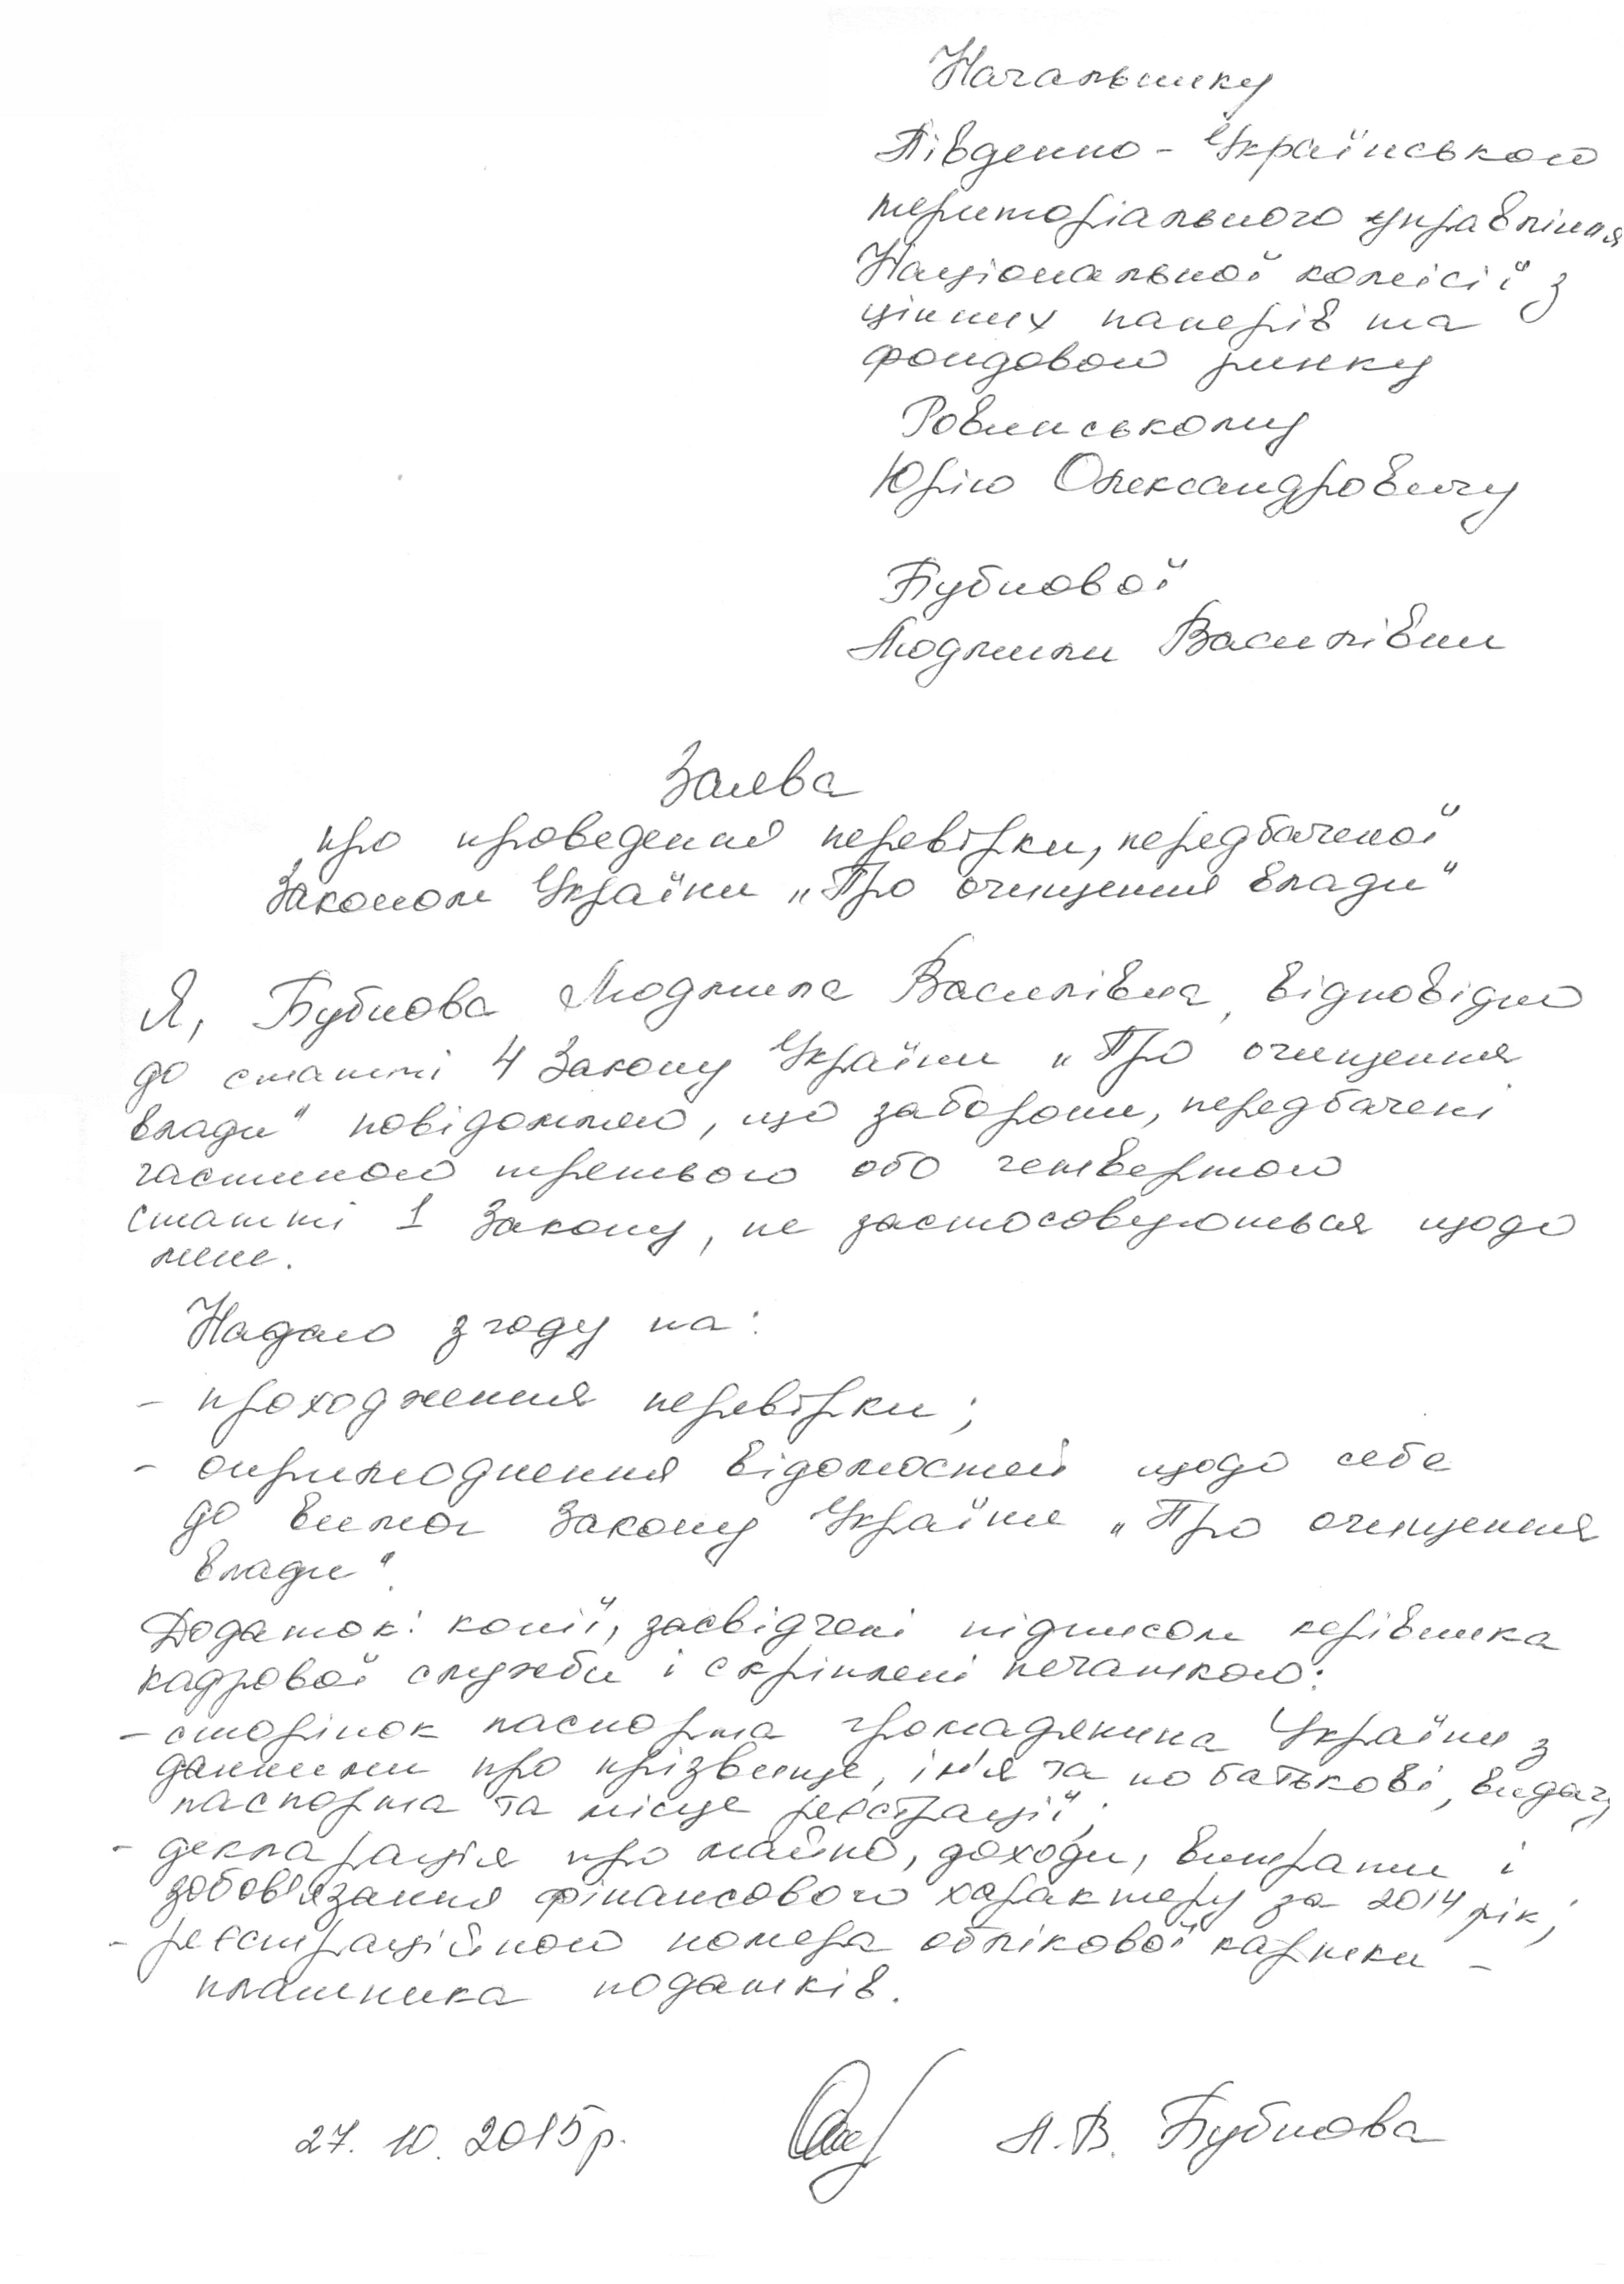 Начальнику
Південно - Українського
територіального управління
Національної комісії з
цінних паперів та
фондового ринку
Ровинському
Юрію Олександровичу
Бубнової
Людмили Василівни
Заява
про проведення перевірки, передбаченої
Законом України „Про очищення влади"
Я, Бубнова Людмила Василівна, відповідно
до статті 4 Закону України „Про очищення
влади" повідомляю, що заборони, передбачені
частиною третьою або четвертою
статті 1 Закону, не застосовуються щодо
мене.
Надаю згоду на:
- проходження перевірки;
- оприлюднення відомостей щодо себе
до вимог Закону України „Про очищення
влади".
Додаток: копії, засвідчені підписом керівника
кадрової служби і скріплені печаткою:
- сторінок паспорта громадянина України з
данними про прізвище, ім'я та по батькові, видачу
паспорта та місце реєстрації;
- декларація про майно, доходи, витрати і
зобов'язання фінансового характеру за 2014 рік;
- реєстраційного номера облікової картки -
платника податків.
27. 10. 2015р. Л.В. Бубнова